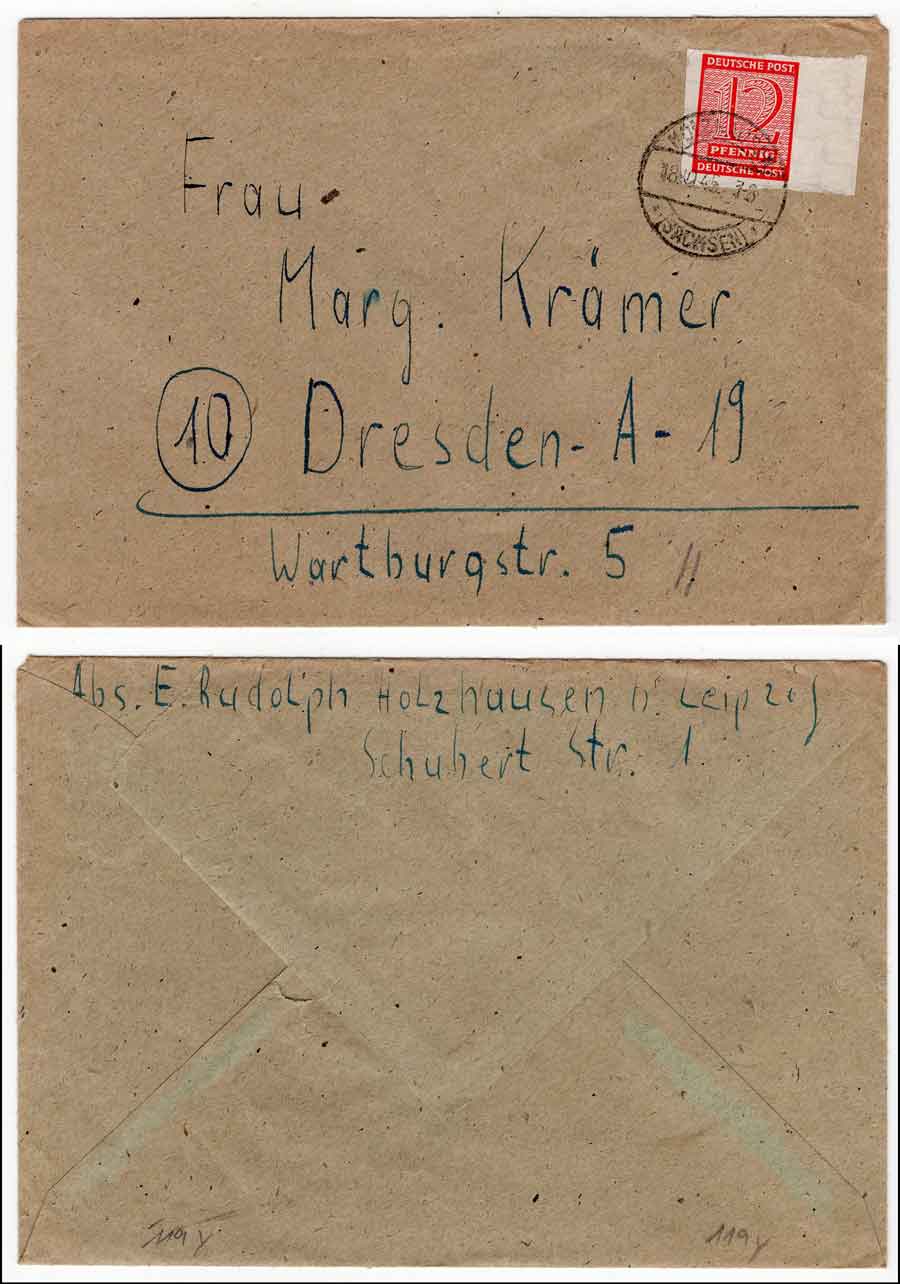 DEUTSCHE POST
12
PFENNIG
DEUTSCHE POST
(SACHSEN)
Frau
Marg. Krämer
10 Dresden-A-19
Wartburgstr. 5
Abs. E. Rudolph Holzhausen b. Leipzig
Schubert Str. 1
119y
119y